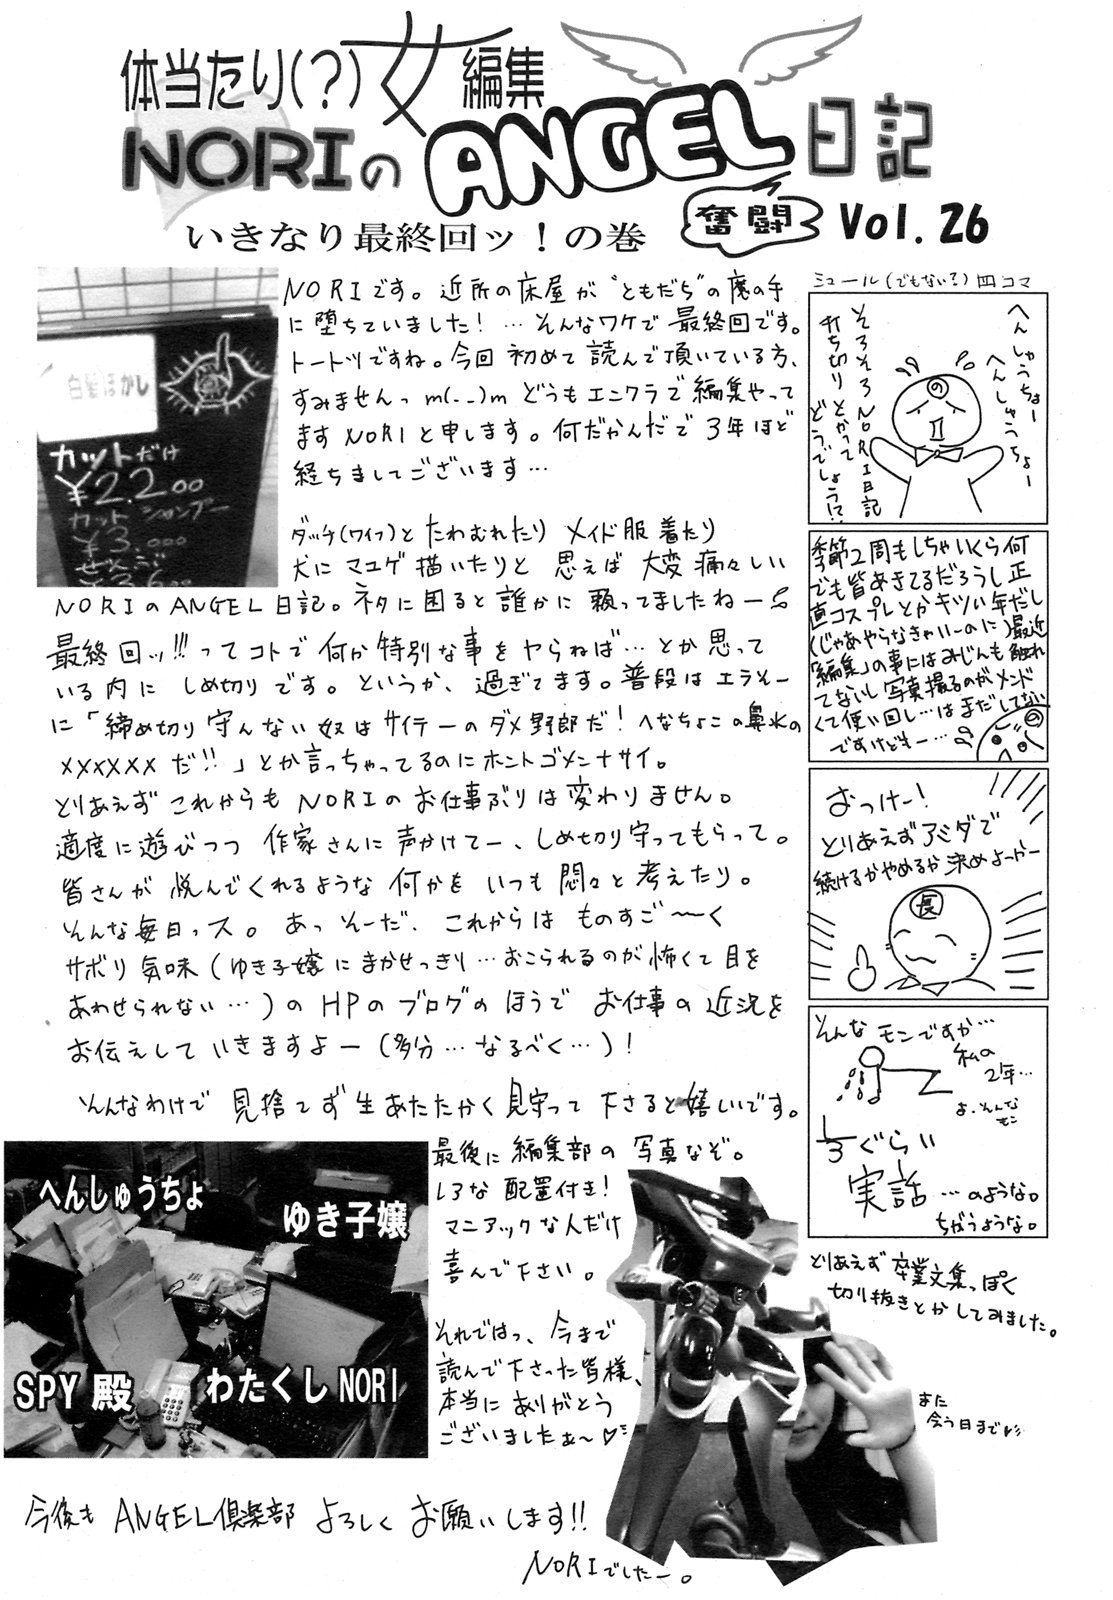 体当たり(?)女編集
NORIのANGEL日記
奮闘
Vol. 26
いきなり最終回ッ!の巻
白髪ぼかし
カットだけ
¥2.200
カット シャンプー
¥3000
NORIです。近所の床屋が“ともだち”の魔の手
に堕ちていました! …そんなワケで最終回です。
トートツですね。今回 初めて 読んで頂いている方、
すみませんっ m(_ _)m どうもエンクラで編集やって
ますNORIと申します。何だかんだで 3年ほど
経ちましてございます…
ダッチ(ワイフ)と たわむれたり メイド服 着たり
犬に マユゲ 描いたりと 思えば 大変 痛々しい
NORIのANGEL日記。ネタに困ると誰かに頼ってましたねー
最終回ッ!!!ってコトで何か特別な事をヤらねば…とか思って
いる内に しめ切りです。というか、過ぎてます。普段はエラそー
に「締め切り守んない奴はサイテーのダメ野郎だ! へなちょこの鼻水の
××××××だ!!」とか言っちゃってるのにホントゴメンナサイ。
とりあえず これからも NORIの お仕事ぶりは変わりません。
適度に遊びつつ 作家さんに声かけてー、しめ切り守ってもらって。
皆さんが 悦んでくれるような 何かを いつも 悶々と 考えたり。
そんな毎日っス。 あっ そーだ、これからは ものすご〜く
サボリ気味(ゆき子嬢にまかせっきり…おこられるのが怖くて目を
あわせられない…)の HPの ブログの ほうで お仕事の 近況を
お伝えして いきますよー(多分…なるべく…)!
そんなわけで 見捨てず生あたたかく見守って下さると嬉しいです。
最後に編集部の写真なぞ。
いろな 配置付き!
マニアックな人だけ
喜んで下さい。
それではっ、今まで
読んで下さった皆様、
本当に ありがとう
ございましたぁ〜♡
へんしゅうちょ
ゆき子嬢
SPY殿
わたくしNORI
今後も ANGEL倶楽部 よろしく お願いします!!
NORIでしたー。
ミュール(でもないろ)四コマ
へんしゅうちょー
へんしゅうちょー
の
そろそろNORI日記
打ち切りとかって
どうでしょう!?
季節2周もしちゃいくら何
でも皆あきてるだろうし正
直コスプレとかキツい年だし
(じゃあやらなきゃいーのに)最近
「編集」の事にはみじんも触れ
てないし写真撮るのがメンド
くて使い回し…はまだしてない
ですけどもー…
の
おっけー!
とりあえずアミダで
続けるかやめるか決めよっかー
長
そんな モンですか…
私の
2年…
ま、そんな
モン
1/3ぐらい
実話…のような。
ちがうような。
とりあえず 卒業文集っぽく
切り抜きとかしてみました。
また
会う日まで♡